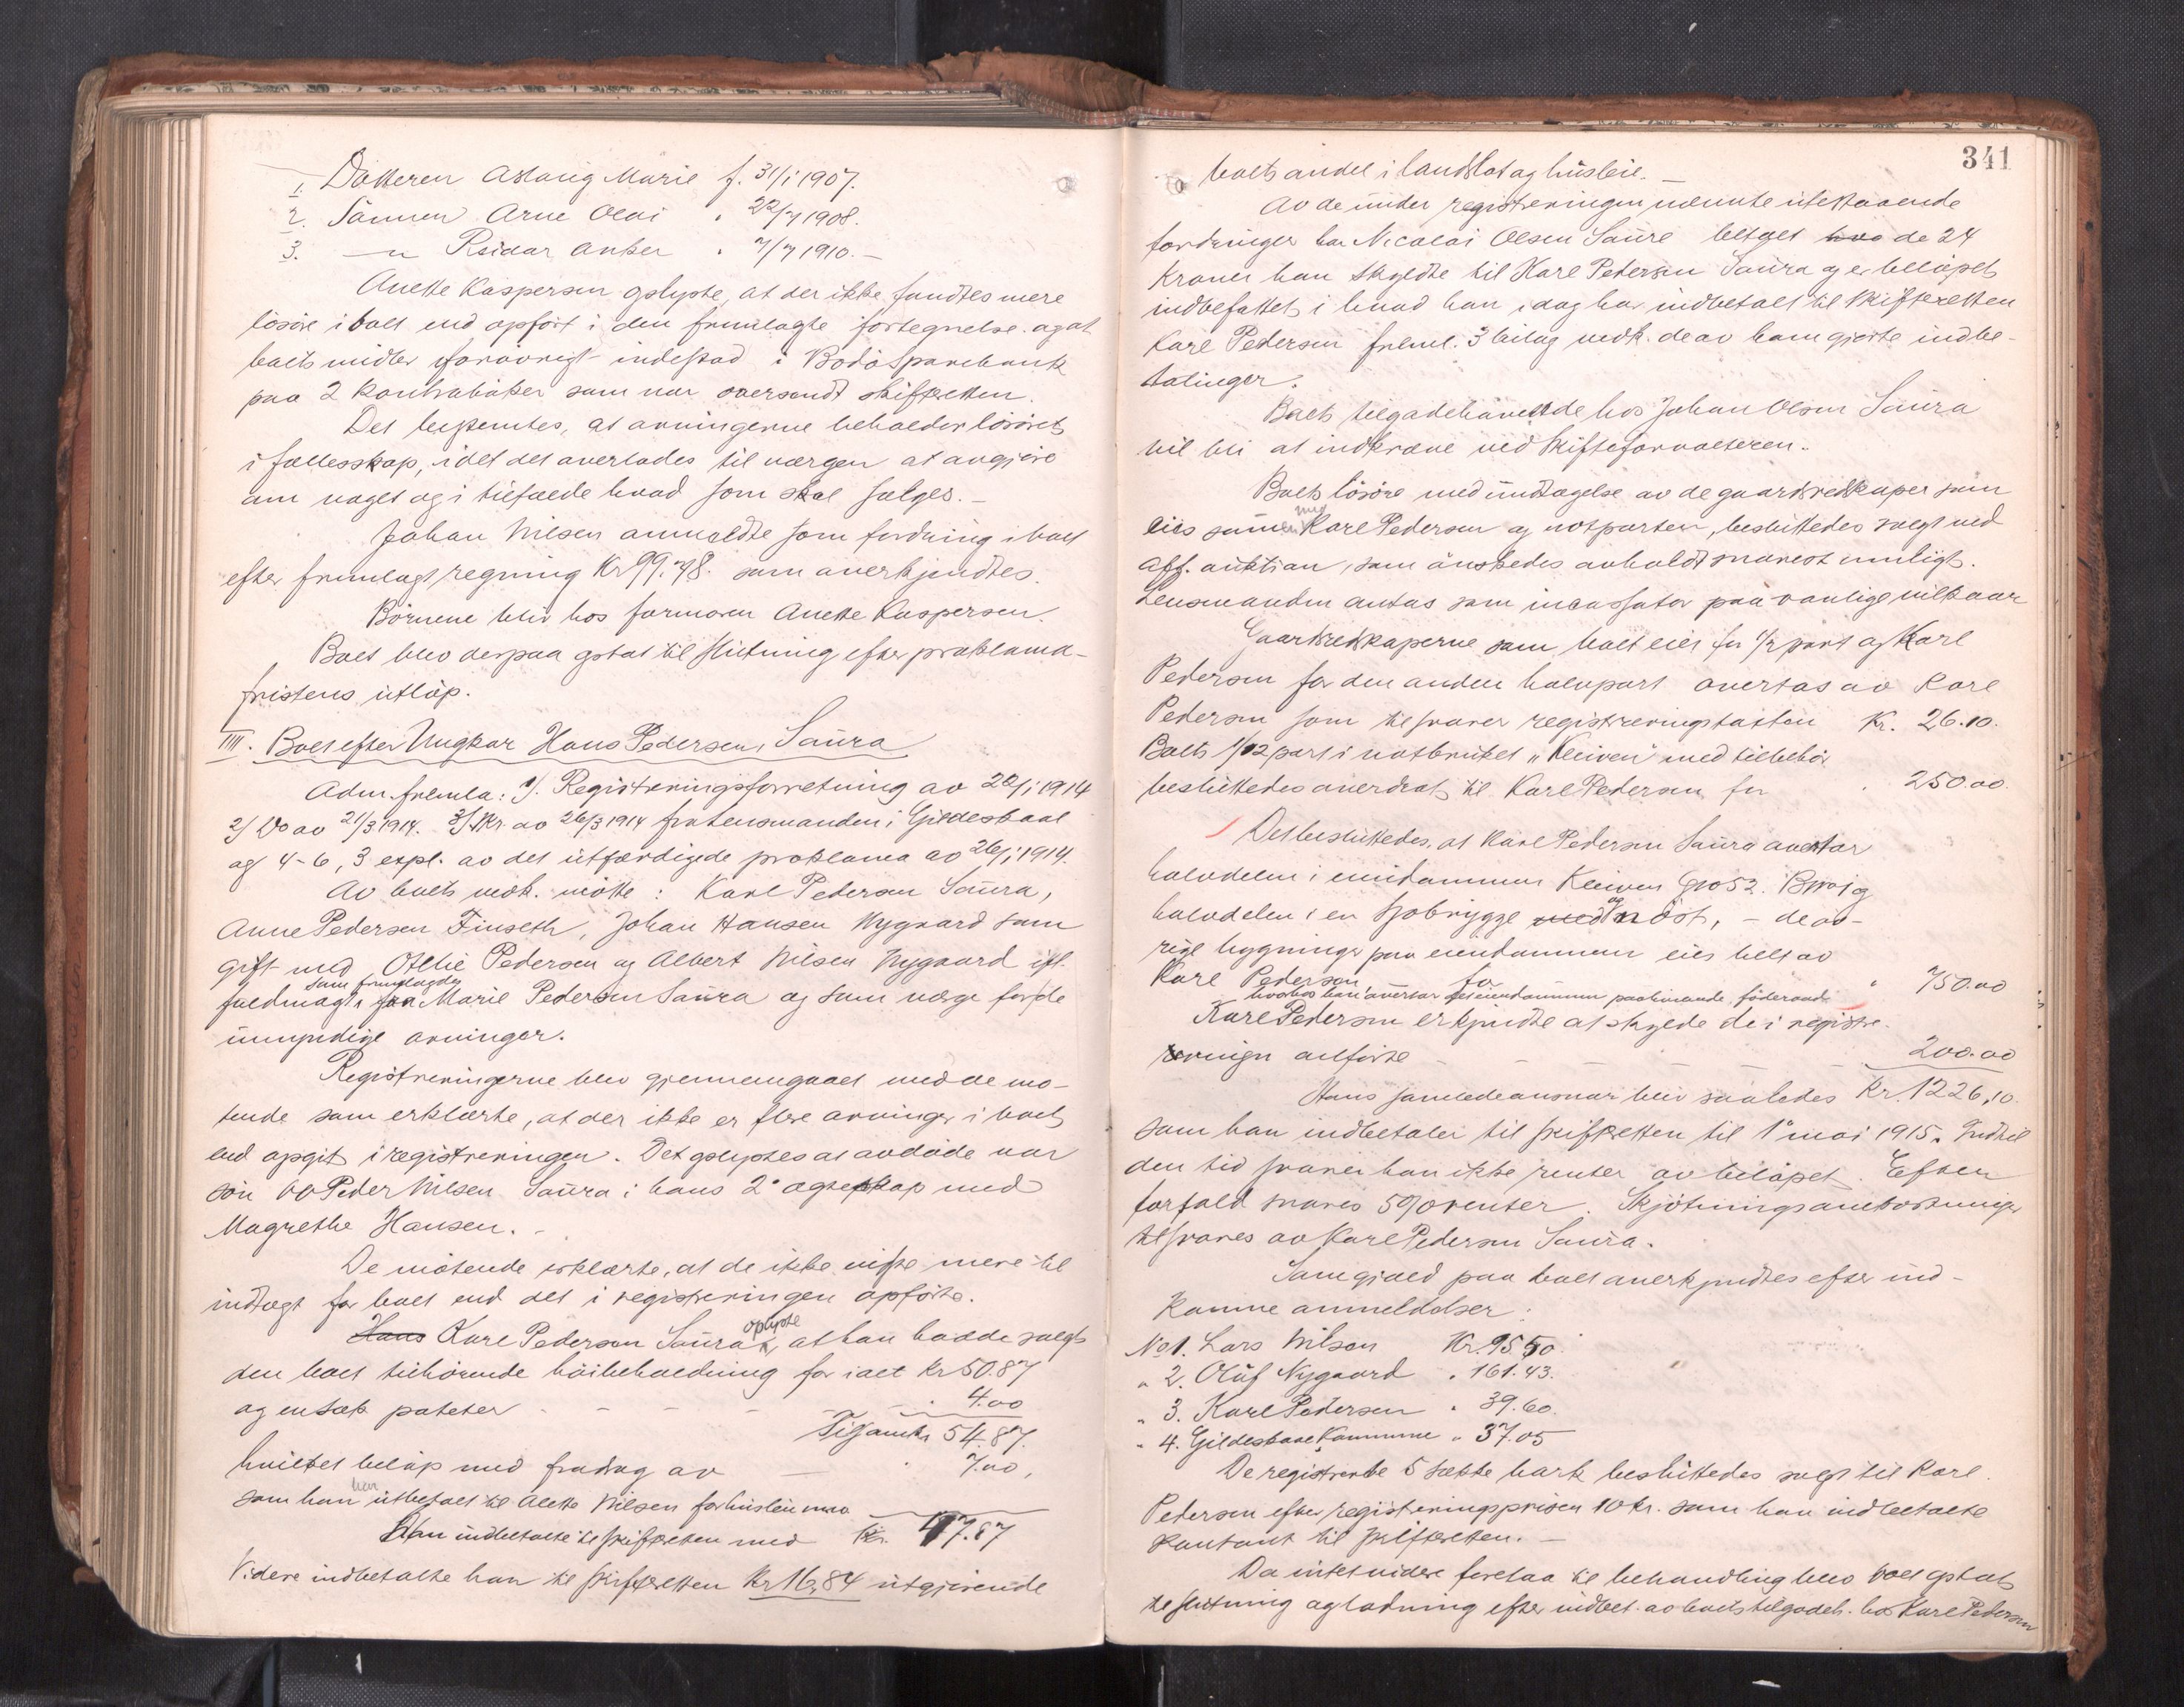 1. Datteren Aslaug Marie f. 31/1 1907.
2. Sønnen Arne Olai " 22/7 1908.
3. — " Reidar Anker " 7/7 1910. —
Anette Kaspersen oplyste, at der ikke fandtes mere
løsøre i boet end opført i den fremlagte fortegnelse. og at
boets midler forøvrigt indestod i Bodø Sparebank
paa 2 kontrabøker som var oversendt skifteretten.
Det bestemtes, at arvingerne beholder løsøret
i fællesskap, idet det overlades til værgen at avgjøre
om noget og i tilfælde hvad som skal sælges. —
Johan Nilsen anmeldte som fordring i boet
efter fremlagt regning Kr 99.78. som anerkjendtes.
Børnene blir hos farmoren Anette Kaspersen.
Boet blev derpaa opstat til slutning efter proklama-
fristens utløp.
IIII. Boet efter Ungkar Hans Pedersen, Saura
Adm. fremla: 1/. Registreringsforretning av 22/1 1914
2/ Do av 21/3 1914. 3/. Skr. av 26/3 1914 fra lensmanden i Gildeskaal
og 4-6, 3 expl. av det utfærdigede proklama av 26/1 1914.
Av boets vedk. møtte: Karl Pedersen Saura,
Anne Pedersen Finseth, Johan Hansen Nygaard som
gift med Otelie Pedersen og Albert Nilsen Nygaard ifl.
som fremlagdes
fuldmagt fra Marie Pedersen Saura og som værge for de
umyndige arvinger.
Registreringerne blev gjennemgaaet med de mø-
tende som erklærte, at der ikke er flere arvinger i boet
end opgit i registreringen. Det oplystes at avdøde var
søn av Peder Nilsen Saura i hans 2° egteskap med
Magrethe Hansen. —
De møtende erklærte, at de ikke visste mere til
indtægt for boet end det i registreringen opførte.
Hans Karl Pedersen Saura oplyste, at han hadde solgt
den boet tilhørende høibeholdning for ialt kr 50.87
og en sæk poteter - - - - 4.00
Tilsam kr 54.87.
hvilket beløp med fradrag av — " 7.00,
som han har utbetalt til Alette Nilsen for husleie maa
Han indbetalte til skifteretten med Kr. 47.87
Videre indbetalte han til skifteretten Kr 16,84 utgjørende
341
boets andel i landslot og husleie. —
Av de under registreringen nævnte utestaaende
fordringer har Nicolai Olsen Saure betalt hos de 24
kroner han skyldte til Karl Pedersen Saura og er beløpet
indbefattet i hvad han idag har indbetalt til skifteretten
Karl Pedersen freml. 3 bilag vedk. de av ham gjorte indbe-
talinger.
Boets tilgodehavende hos Johan Olsen Saura
vil bli at indkræve ved skifteforvalteren.
Boets løsøre med undtagelse av de gaardsredskaper som
eies sammen med Karl Pedersen og notparten, besluttedes solgt ved
off. auktion, som ønskedes avholdt snarest muligt.
Lensmanden antas som incassator paa vanlige vilkaar
Gaardsredskaperne som boet eier for 1/2 part og Karl
Pedersen for den anden halvpart overtas av Karl
Pedersen som tilsvarer registreringstaksten Kr. 26.10.
Boets 1/12 part i notbruket "Kleiven" med tilbehør
besluttedes overdrat til Karl Pedersen for " 250.00.
Det besluttedes, at Karl Pedersen Saura overtar
halvdelen i eiendommen Kleiven Gno 52. Bno 1 og
halvdelen i en sjøbrygge med og nøst, - de øv-
rige bygninger paa eiendommen eies helt av
Karl Pedersen for " 750.00
hvorhos han overtar det eiendommen paahvilende føderaad.
Karl Pedersen erkjendte at skylde de i registre-
ringen anførte - - - - 200.00
Hans samlede ansvar blir saaledes Kr. 1226,10.
som han indbetaler til skifteretten til 1° mai 1915. Indtil
den tid svarer han ikke renter av beløpet. Efter
forfald svares 5% renter. Skjøtningsomkostninger
tilsvares av Karl Pedersen Saura.
Som gjæld paa boet anerkjendtes efter ind-
komne anmeldelser:
No 1. Lars Nilsen Kr. 95.50.
" 2. Oluf Nygaard " 161.43.
" 3. Karl Pedersen " 39.60.
" 4. Gildeskaal Kommune " 37.05
De registrerte 5 sække bark besluttedes solgt til Karl
Pedersen efter registreringsprisen 10 kr. som han indbetalte
kontant til skifteretten. —
Da intet videre foretaa til behandling blev boet opstat
til slutning og lodning efter indbet. av boets tilgodeh. hos Karl Pedersen